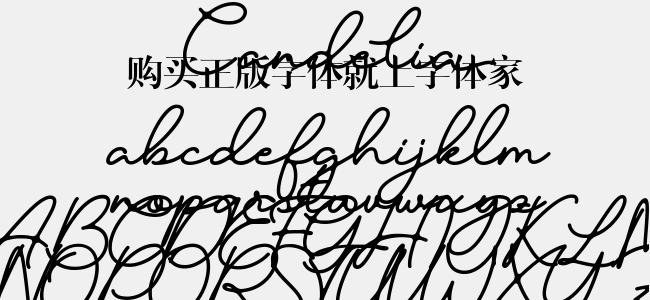 Candelia
购买正版字体就上字体家
abcdefghijklm
nopqrstuvwxyz
ABCDEFGHIJKLM